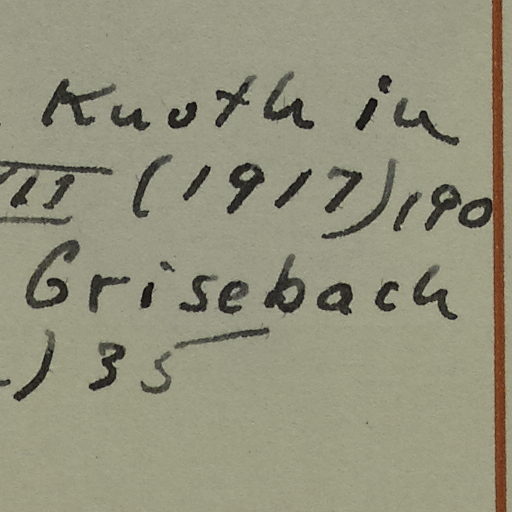 Knoth in
VII (1917) 190
Grisebach
) 35